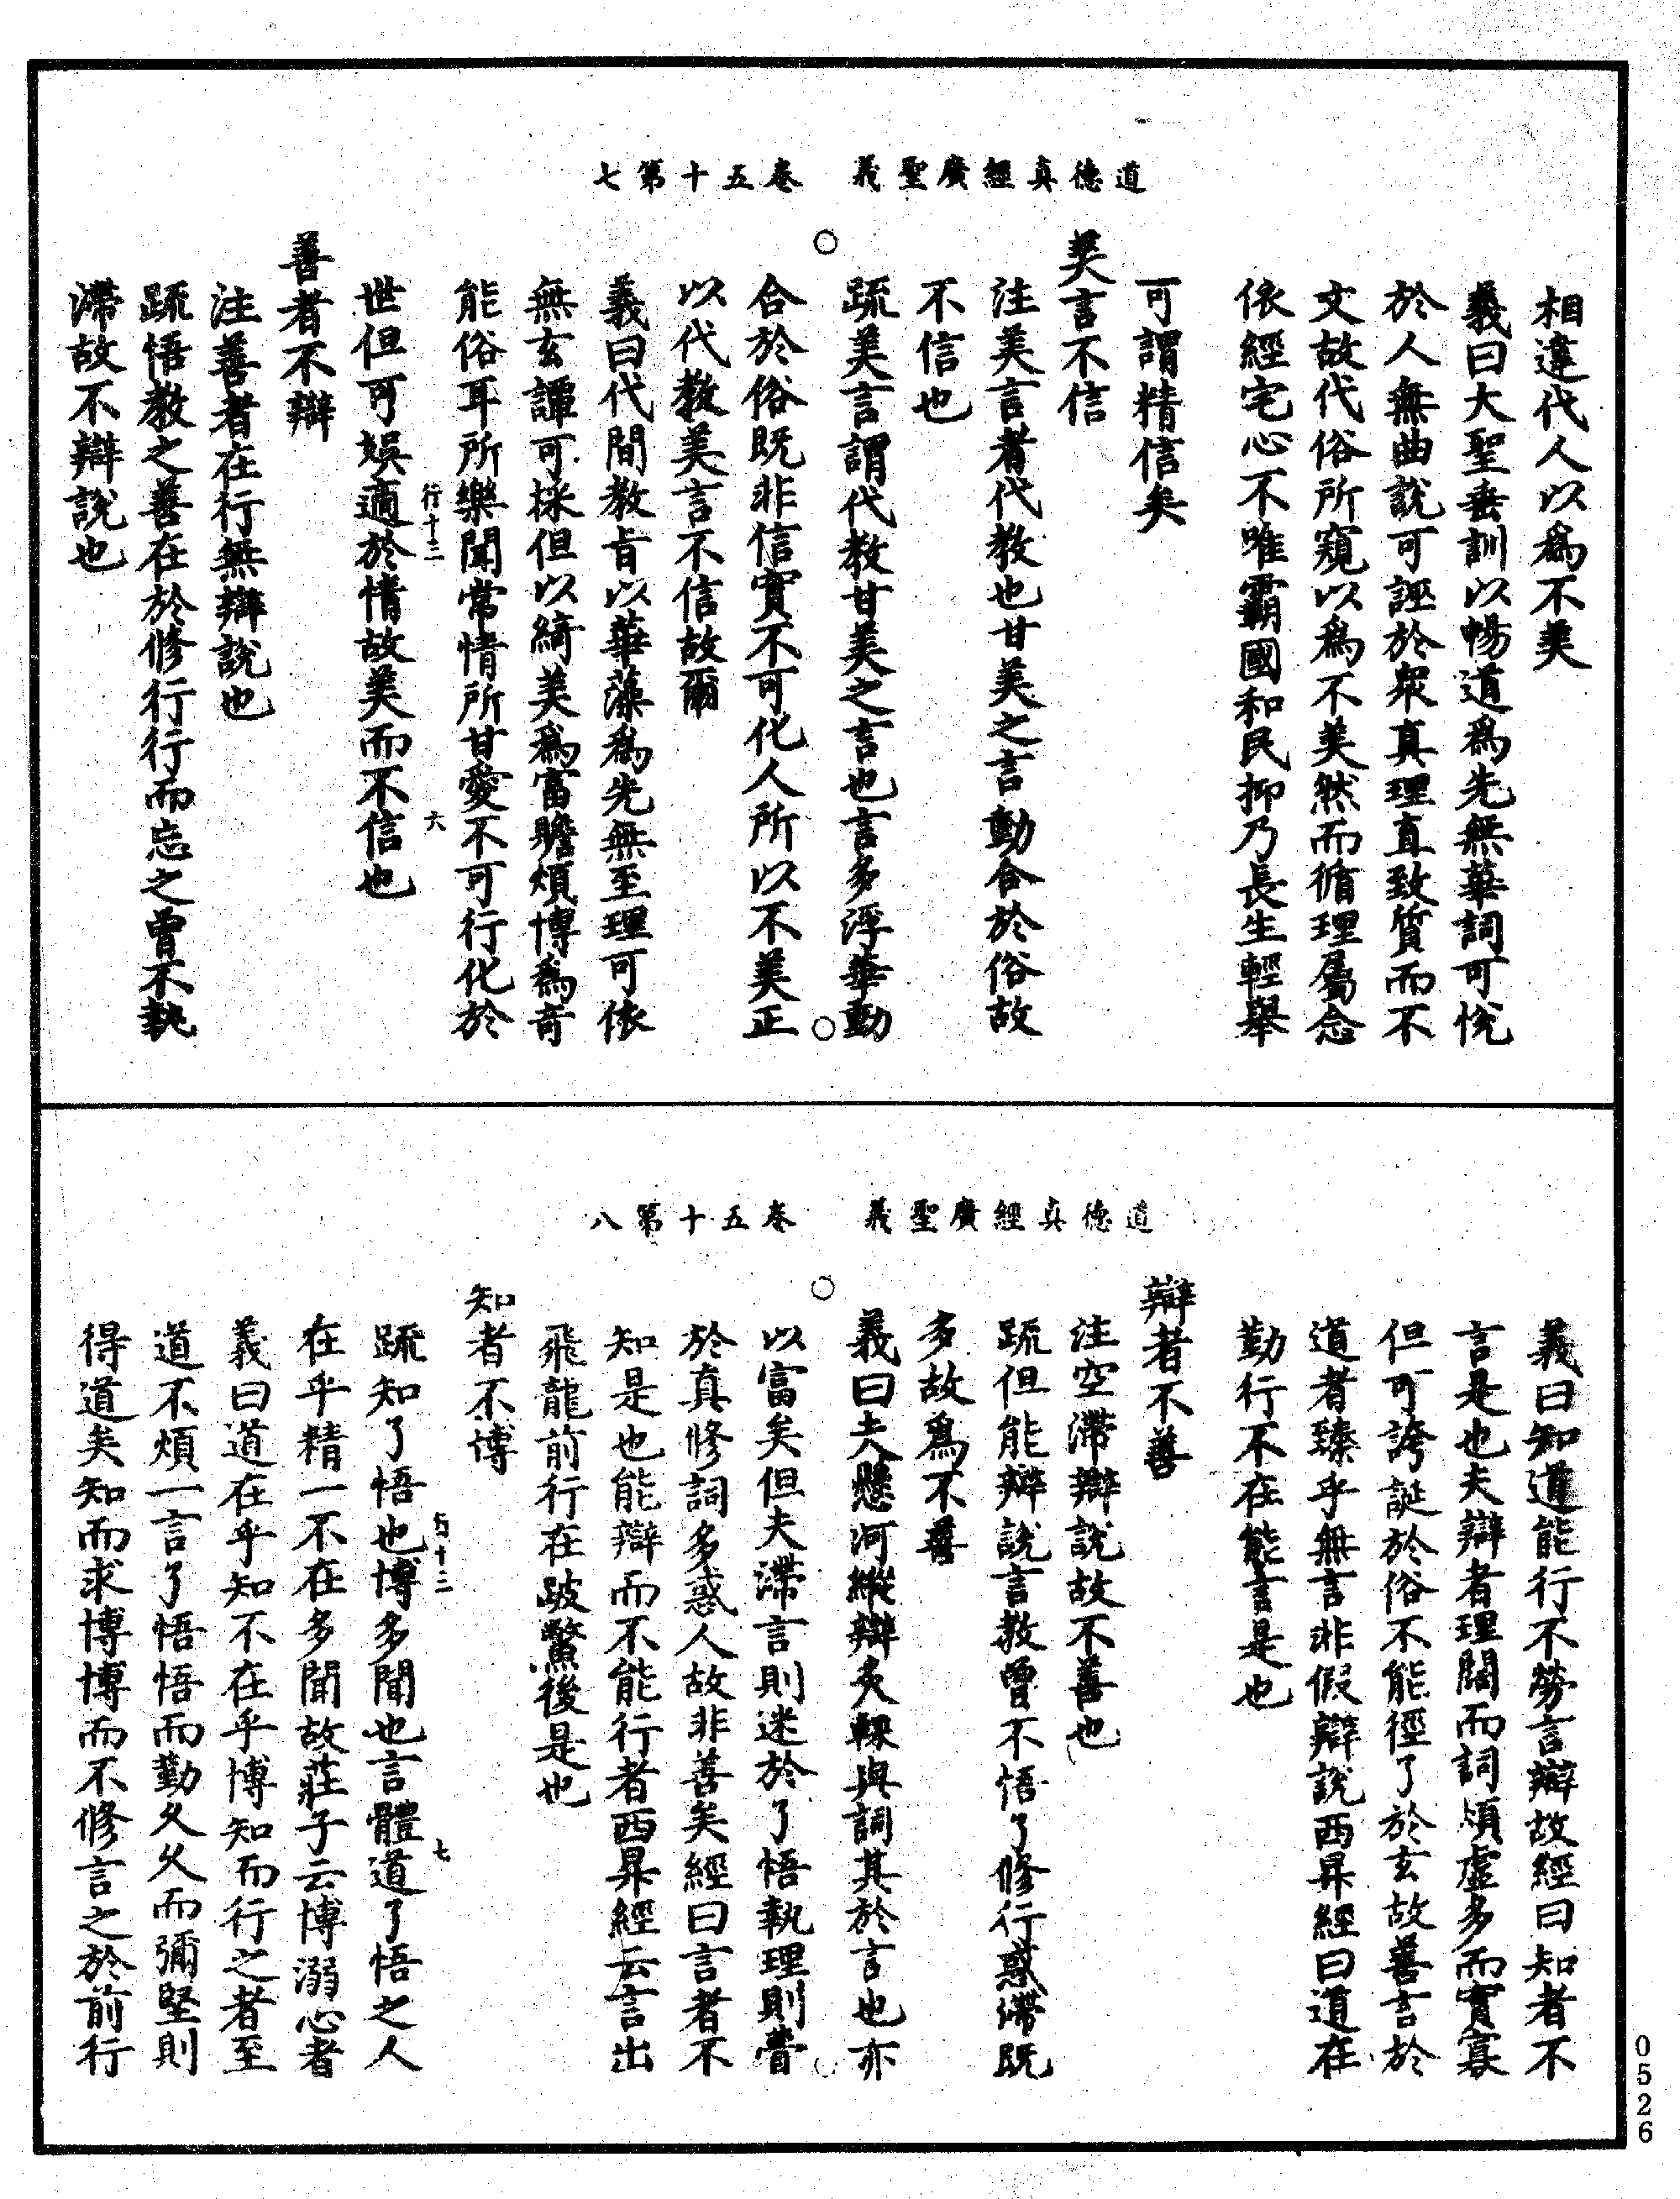 道德真經廣聖義　卷五十第七
相違代人以爲不美
義曰大聖垂訓以暢道爲先無華詞可悅
於人無曲說可誣於衆真理直致質而不
文故代俗所窺以爲不美然而循理屬念
依經宅心不唯霸國和民抑乃長生輕舉
可謂精信矣
美言不信
注美言者代教也甘美之言動合於俗故
不信也
疏美言謂代教甘美之言也言多浮華動
合於俗既非信實不可化人所以不美正
以代教美言不信故爾
義曰代間教旨以華藻爲先無至理可依
無玄譚可採但以綺美爲富贍煩博爲音
能俗耳所樂聞常情所甘愛不可行化於
行十三　六
世但可娛適於情故美而不信也
善者不辯
注善者在行無辯說也
疏悟教之善在於修行行而忘之曾不執
滯故不辯說也
道德真經廣聖義　卷五十第八
義曰知道能行不勞言辯故經曰知者不
言是也夫辯者理闊而詞煩虛多而實寡
但可誇誕於俗不能徑了於玄故善言於
道者臻乎無言非假辯說西昇經曰道在
勤行不在能言是也
辯者不善
注空滯辯說故不善也
疏但能辯說言教曾不悟了修行惑滯既
多故爲不善
義曰夫懸河縱辯炙輠與詞其於言也亦
以富矣但夫滯言則迷於了悟執理則瞢
於真修詞多惑人故非善矣經曰言者不
知是也能辯而不能行者西昇經云言出
飛龍前行在跛鱉後是也
知者不博
十三　七
疏知了悟也博多聞也言體道了悟之人
在乎精一不在多聞故莊子云博溺心者
義曰道在乎知不在乎博知而行之者至
道不煩一言了悟悟而勤久久而彌堅則
得道矣知而求博博而不修言之於前行
0526